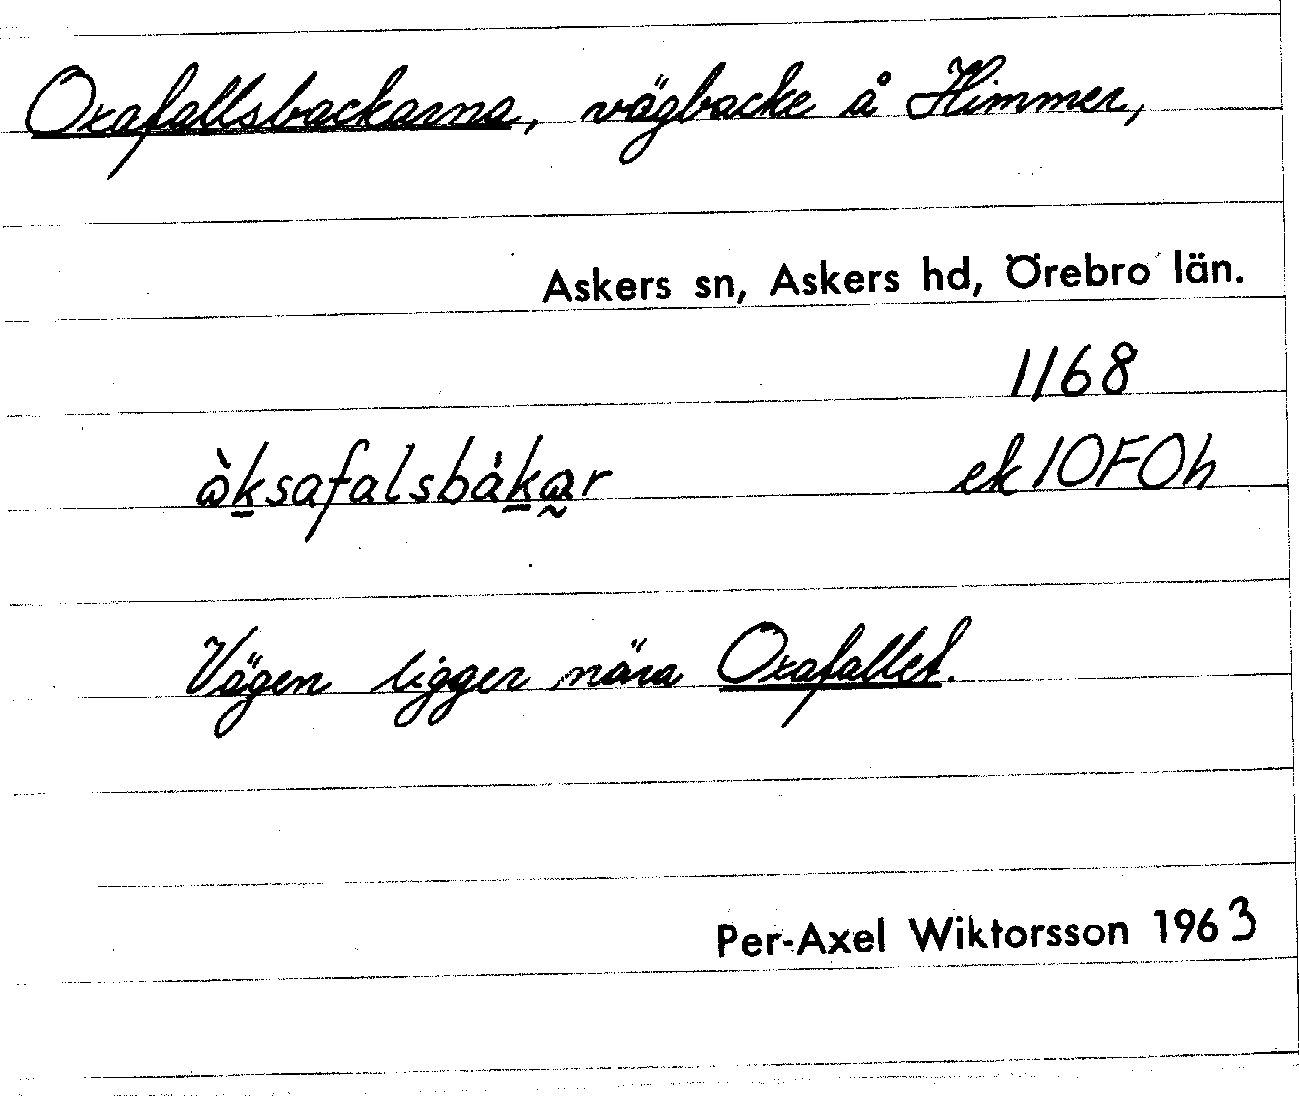 Oxafallsbackarna, vägbacke å Himmer,
Askers sn, Askers hd, Örebro län.
1168
ὼksafalsbákar ek 10F0h
Vägen ligger nära Oxafallet.
Per-Axel Wiktorsson 1963